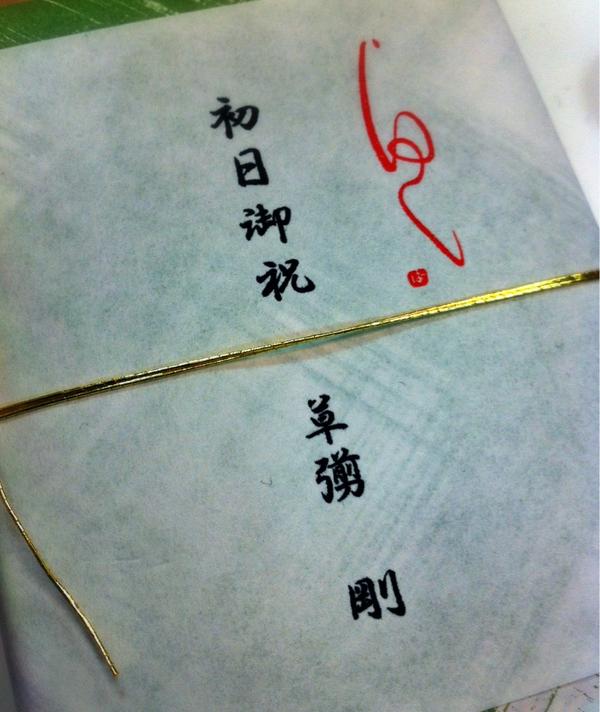 初日御祝
草彅 剛